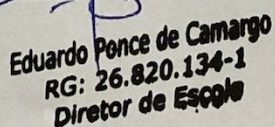 Eduardo Ponce de Camargo
RG: 26.820.134-1
Diretor de Escola